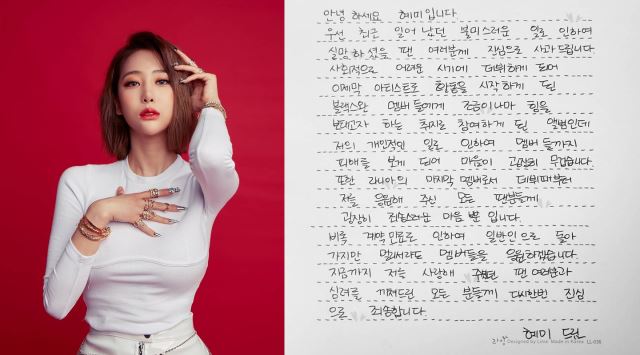 안녕 하세요 혜미입니다
우선 최근 일어 났던 불미스러운 일로 인하여
실망하셨을 팬 여러분께 진심으로 사과드립니다
사회적으로 어려운 시기에 데뷔하게 되어
이제막 아티스트로 활동을 시작하게 된
블랙스완 멤버들에게 조금이나마 힘을
보태고자 하는 취지로 참여하게 된 앨범인데
저의 개인적인 일로 인하여 멤버들까지
피해를 보게 되어 마음이 굉장히 무겁습니다.
또한 라니아의 마지막 멤버로서 데뷔때부터
저를 응원해 주신 모든 팬분들께
굉장히 죄송스러운 마음 뿐 입니다.
비록 계약만료로 인하여 일반인으로 돌아
가지만 멀리서라도 멤버들을 응원하겠습니다.
지금까지 저를 사랑해 주셨던 팬 여러분과
심려를 끼쳐드린 모든 분들께 다시한번 진심
으로 죄송합니다.
혜미 드림
Designed by Lime. Made in Korea. LL-036